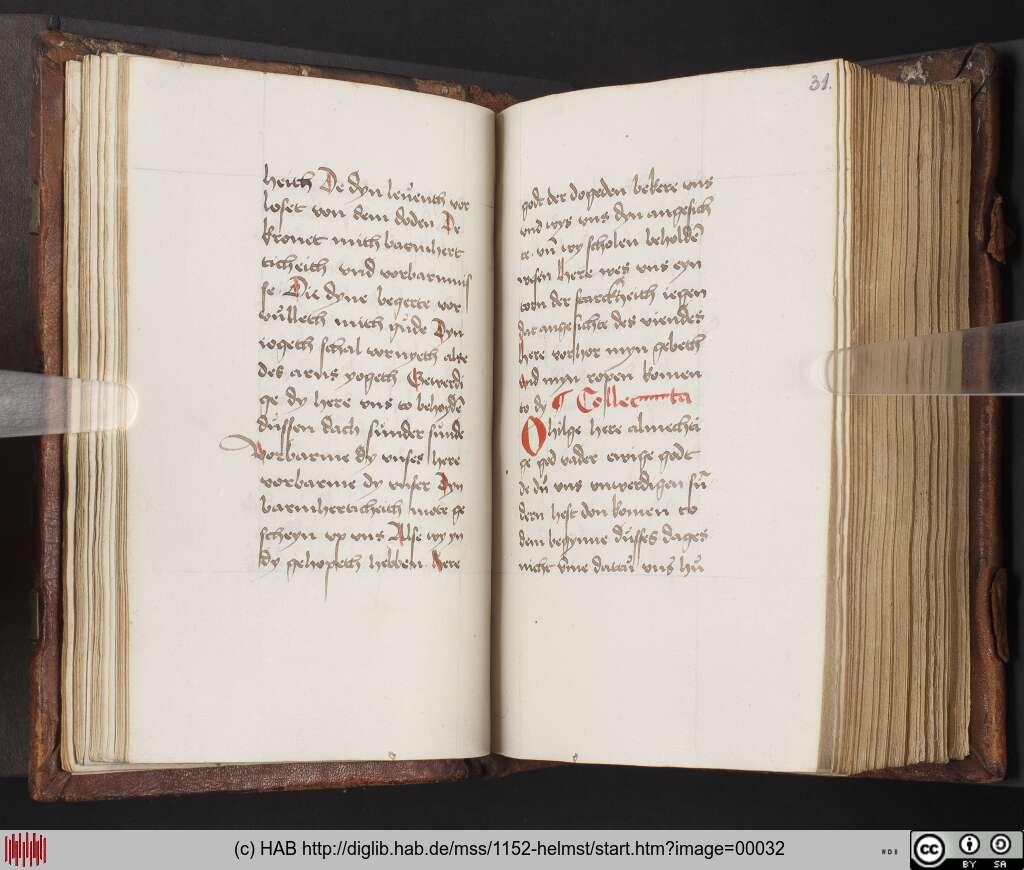 heith De dyn leuenth vor
loset von dem doden De
kronet mith barmhert
ticheith vnd vorbarmnis
se Die dyne begerte vor
vulleth mith gude Dyn
iogeth schal vornyeth alse
des arns yogeth Gewerdi
ge dy here vns to behoyden
dussen dach sunder sunde
Vorbarme dy vnses here
vorbarme dy vnser Dyn
barmherticheith mote ge
scheyn vp vns Alse wy yn
dy gehopeth hebben Here
31.
godt der dogeden bekere vns
vnd wys vns dyn angesich
te vn wy scholen beholden
wesen here wes vns eyn
torn der starckheith iegen
dat angesichte des viendes
Here vorhor myn gebeth
vnd myn ropen komen
to dy ¶ Collecta
O hilge here almechti
ge god vader ewige godt
de du vns vnwerdigen sun
dern hest don komen to
dem begynne dusses dages
nicht vme dattu vns hu
(c) HAB http://diglib.hab.de/mss/1152-helmst/start.htm?image=00032
WDB
cc BY SA